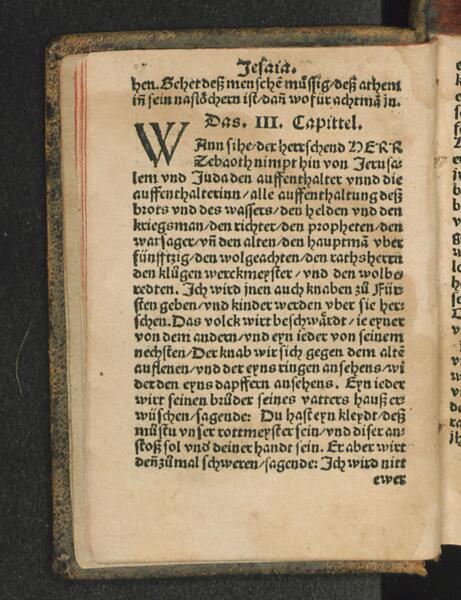 Jesaia.
hen. Gehet deß menschē müssig/deß athem
iñ sein naslöchern ist/dañ wofür achtmā in.
Das. III. Capittel.
WAnn sihe/der herrschend HERR
Zebaoth nimpt hin von Jerusa-
lem vnd Juda den auffenthalter vnnd die
auffenthalterinn/alle auffenthaltung deß
brots vnd des wassers/den helden vnd den
kriegsman/den richter/den propheten/den
warsager/vñ den alten/den hauptmā vber
fünfftzig/den wolgeachten/den rathsherrn
den klůgen werckmeyster/vnd den wolbe
redten. Jch wird jnen auch knaben zů Für-
sten geben/vnd kinder werden vber sie her-
schen. Das volck wirt beschwärdt/ie eyner
von dem andern/vnd eyn ieder von seinem
nechsten/Der knab wir sich gegen dem altē
auflenen/vnd der eyns ringen ansehens/wi
der den eyns dapffern ansehens. Eyn ieder
wirt seinen brůder seines vatters hauß er-
wüschen/sagende: Du hast eyn kleydt/deß
můstu vnser rottmeyster sein/vnd diser an-
stoß sol vnd deiner handt sein. Er aber wirt
deñ zůmal schweren/sagende: Jch wird nitt
ewer